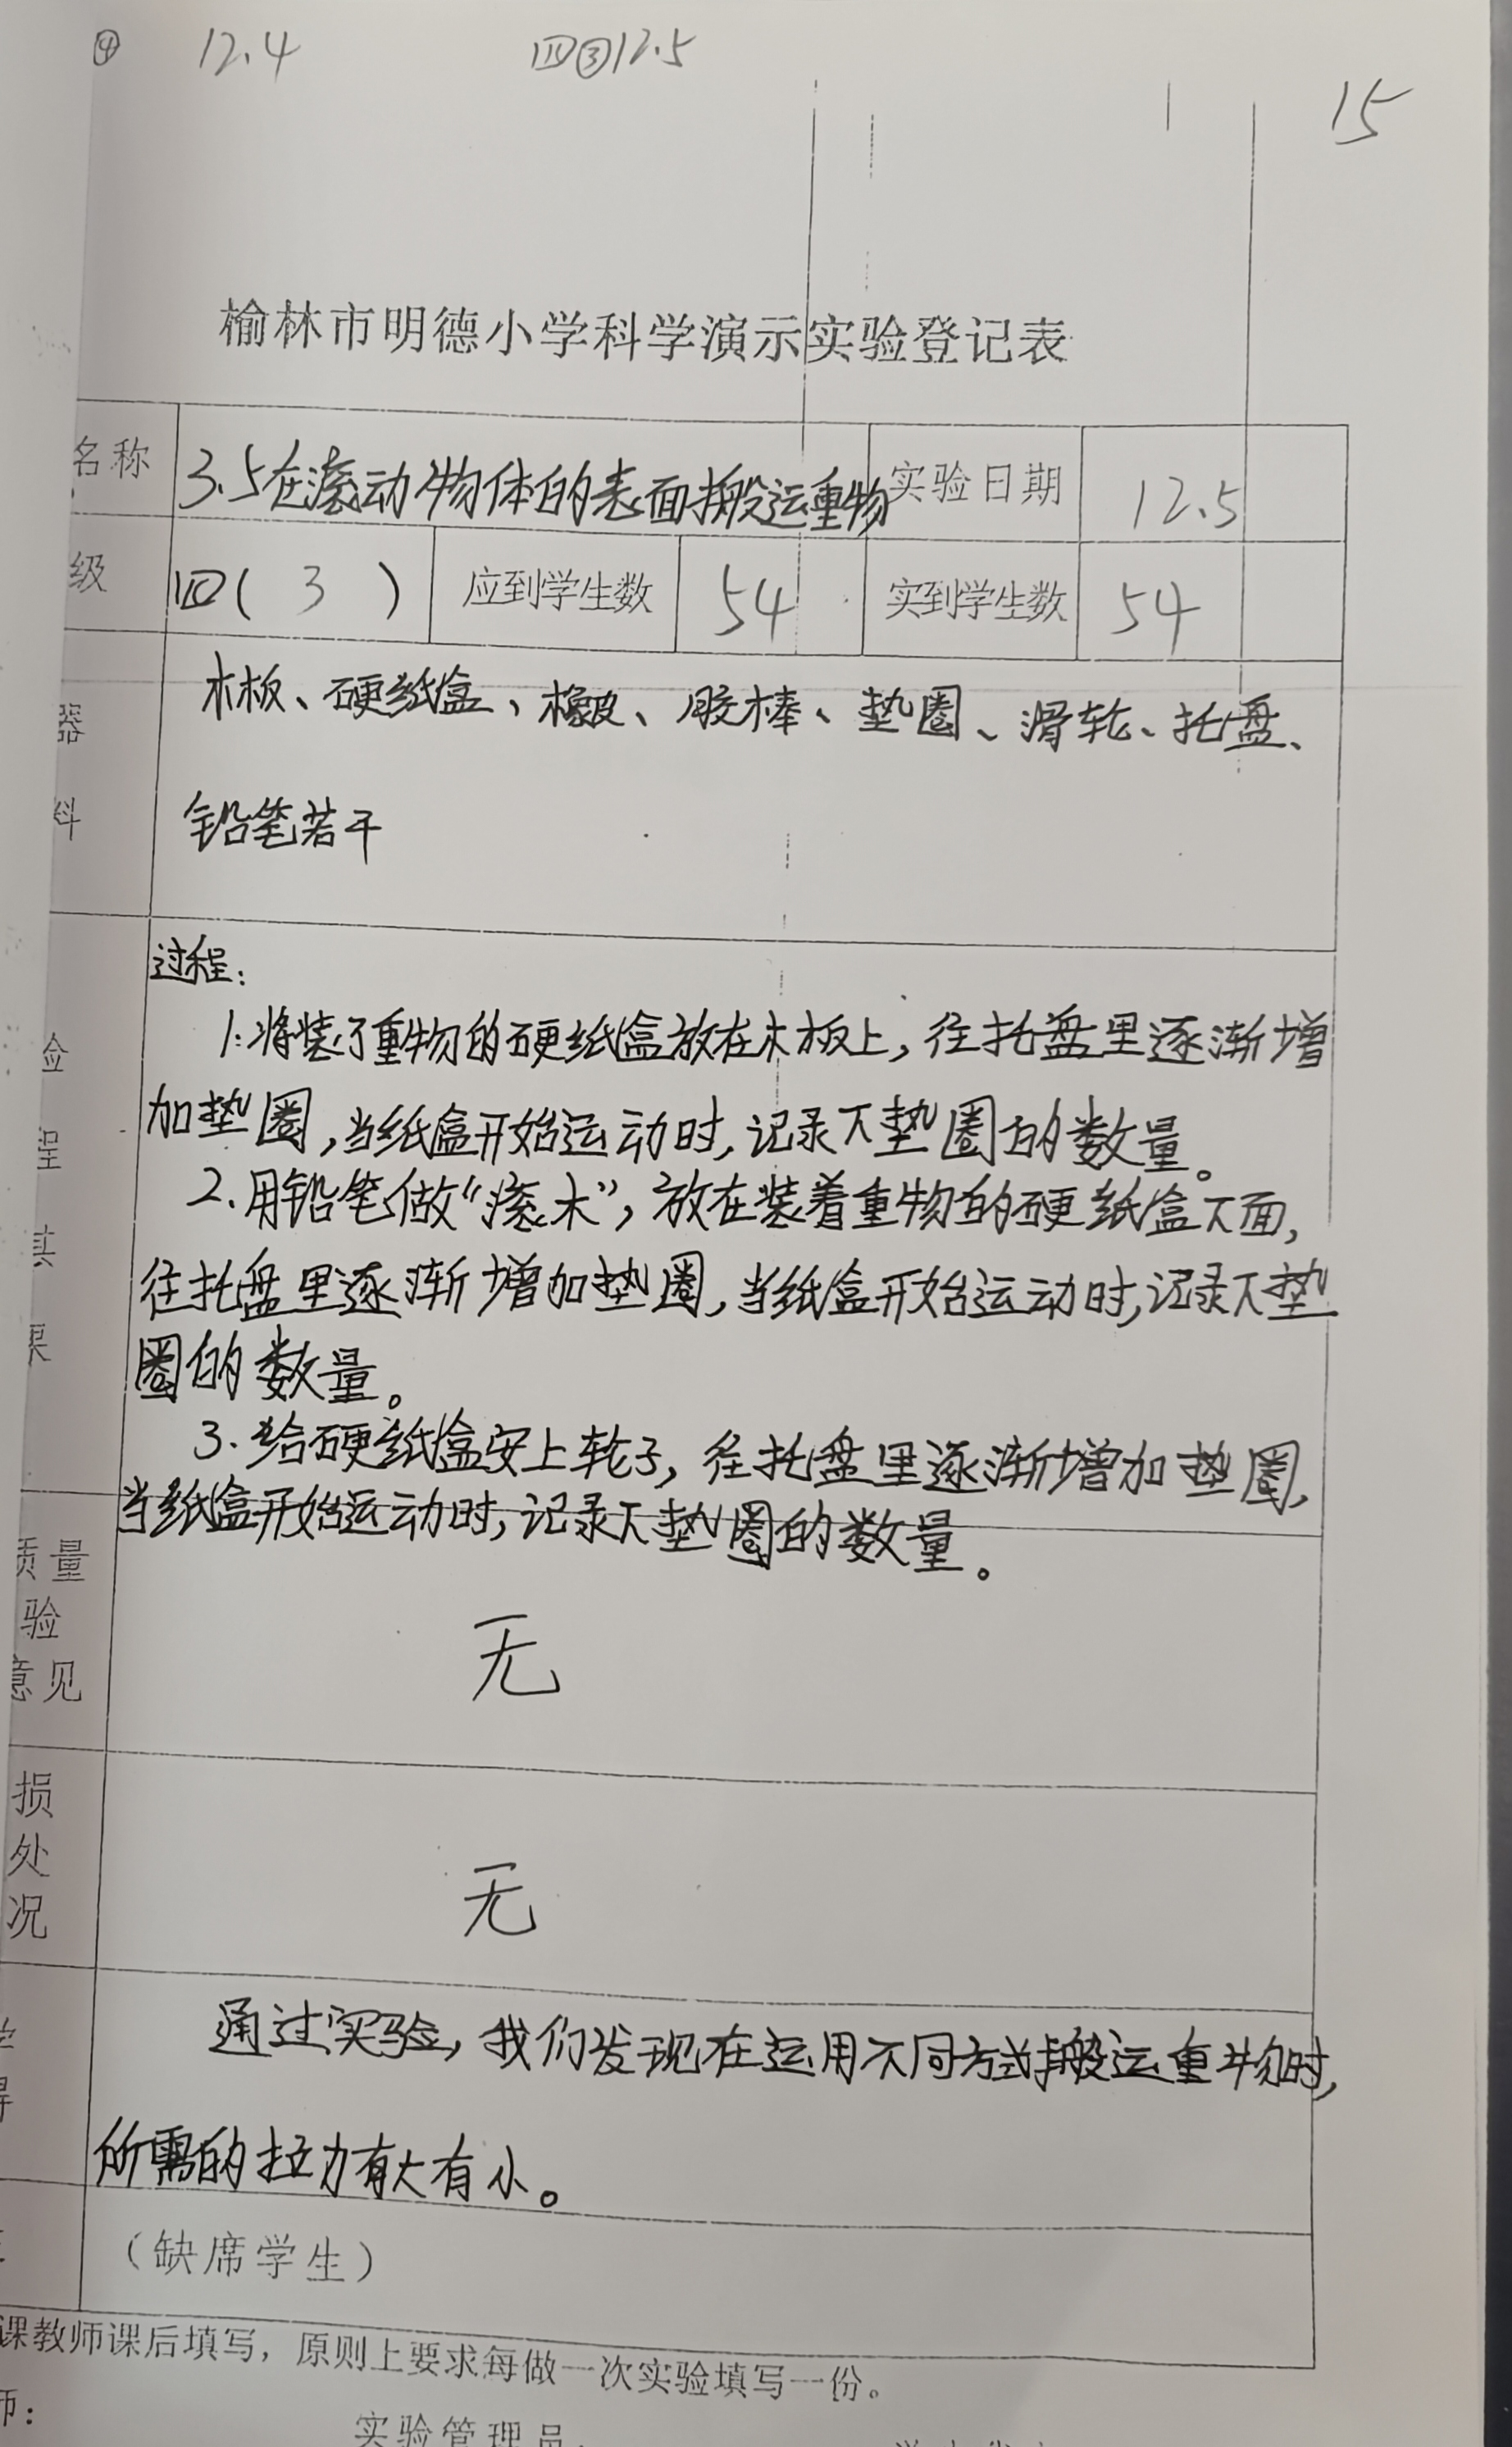 ④ 12.4 四③12.5
15
榆林市明德小学科学演示实验登记表
名称 3.5在滚动物体的表面搬运重物 实验日期 12.5
级 四( 3 ) 应到学生数 54 实到学生数 54
器 木板、硬纸盒、橡皮、胶棒、垫圈、滑轮、托盘、
料 铅笔若干
过程:
1.将装了重物的硬纸盒放在木板上,往托盘里逐渐增
加垫圈,当纸盒开始运动时,记录下垫圈的数量。
2.用铅笔做“滚木”,放在装着重物的硬纸盒下面,
往托盘里逐渐增加垫圈,当纸盒开始运动时,记录下垫
圈的数量。
3.给硬纸盒安上轮子,往托盘里逐渐增加垫圈,
当纸盒开始运动时,记录下垫圈的数量。
验
程
果
质量
验
意见
无
损
处
况
无
通过实验,我们发现在运用不同方式搬运重物时,
所需的拉力有大有小。
(缺席学生)
课教师课后填写,原则上要求每做一次实验填写一份。
师:
实验管理员: